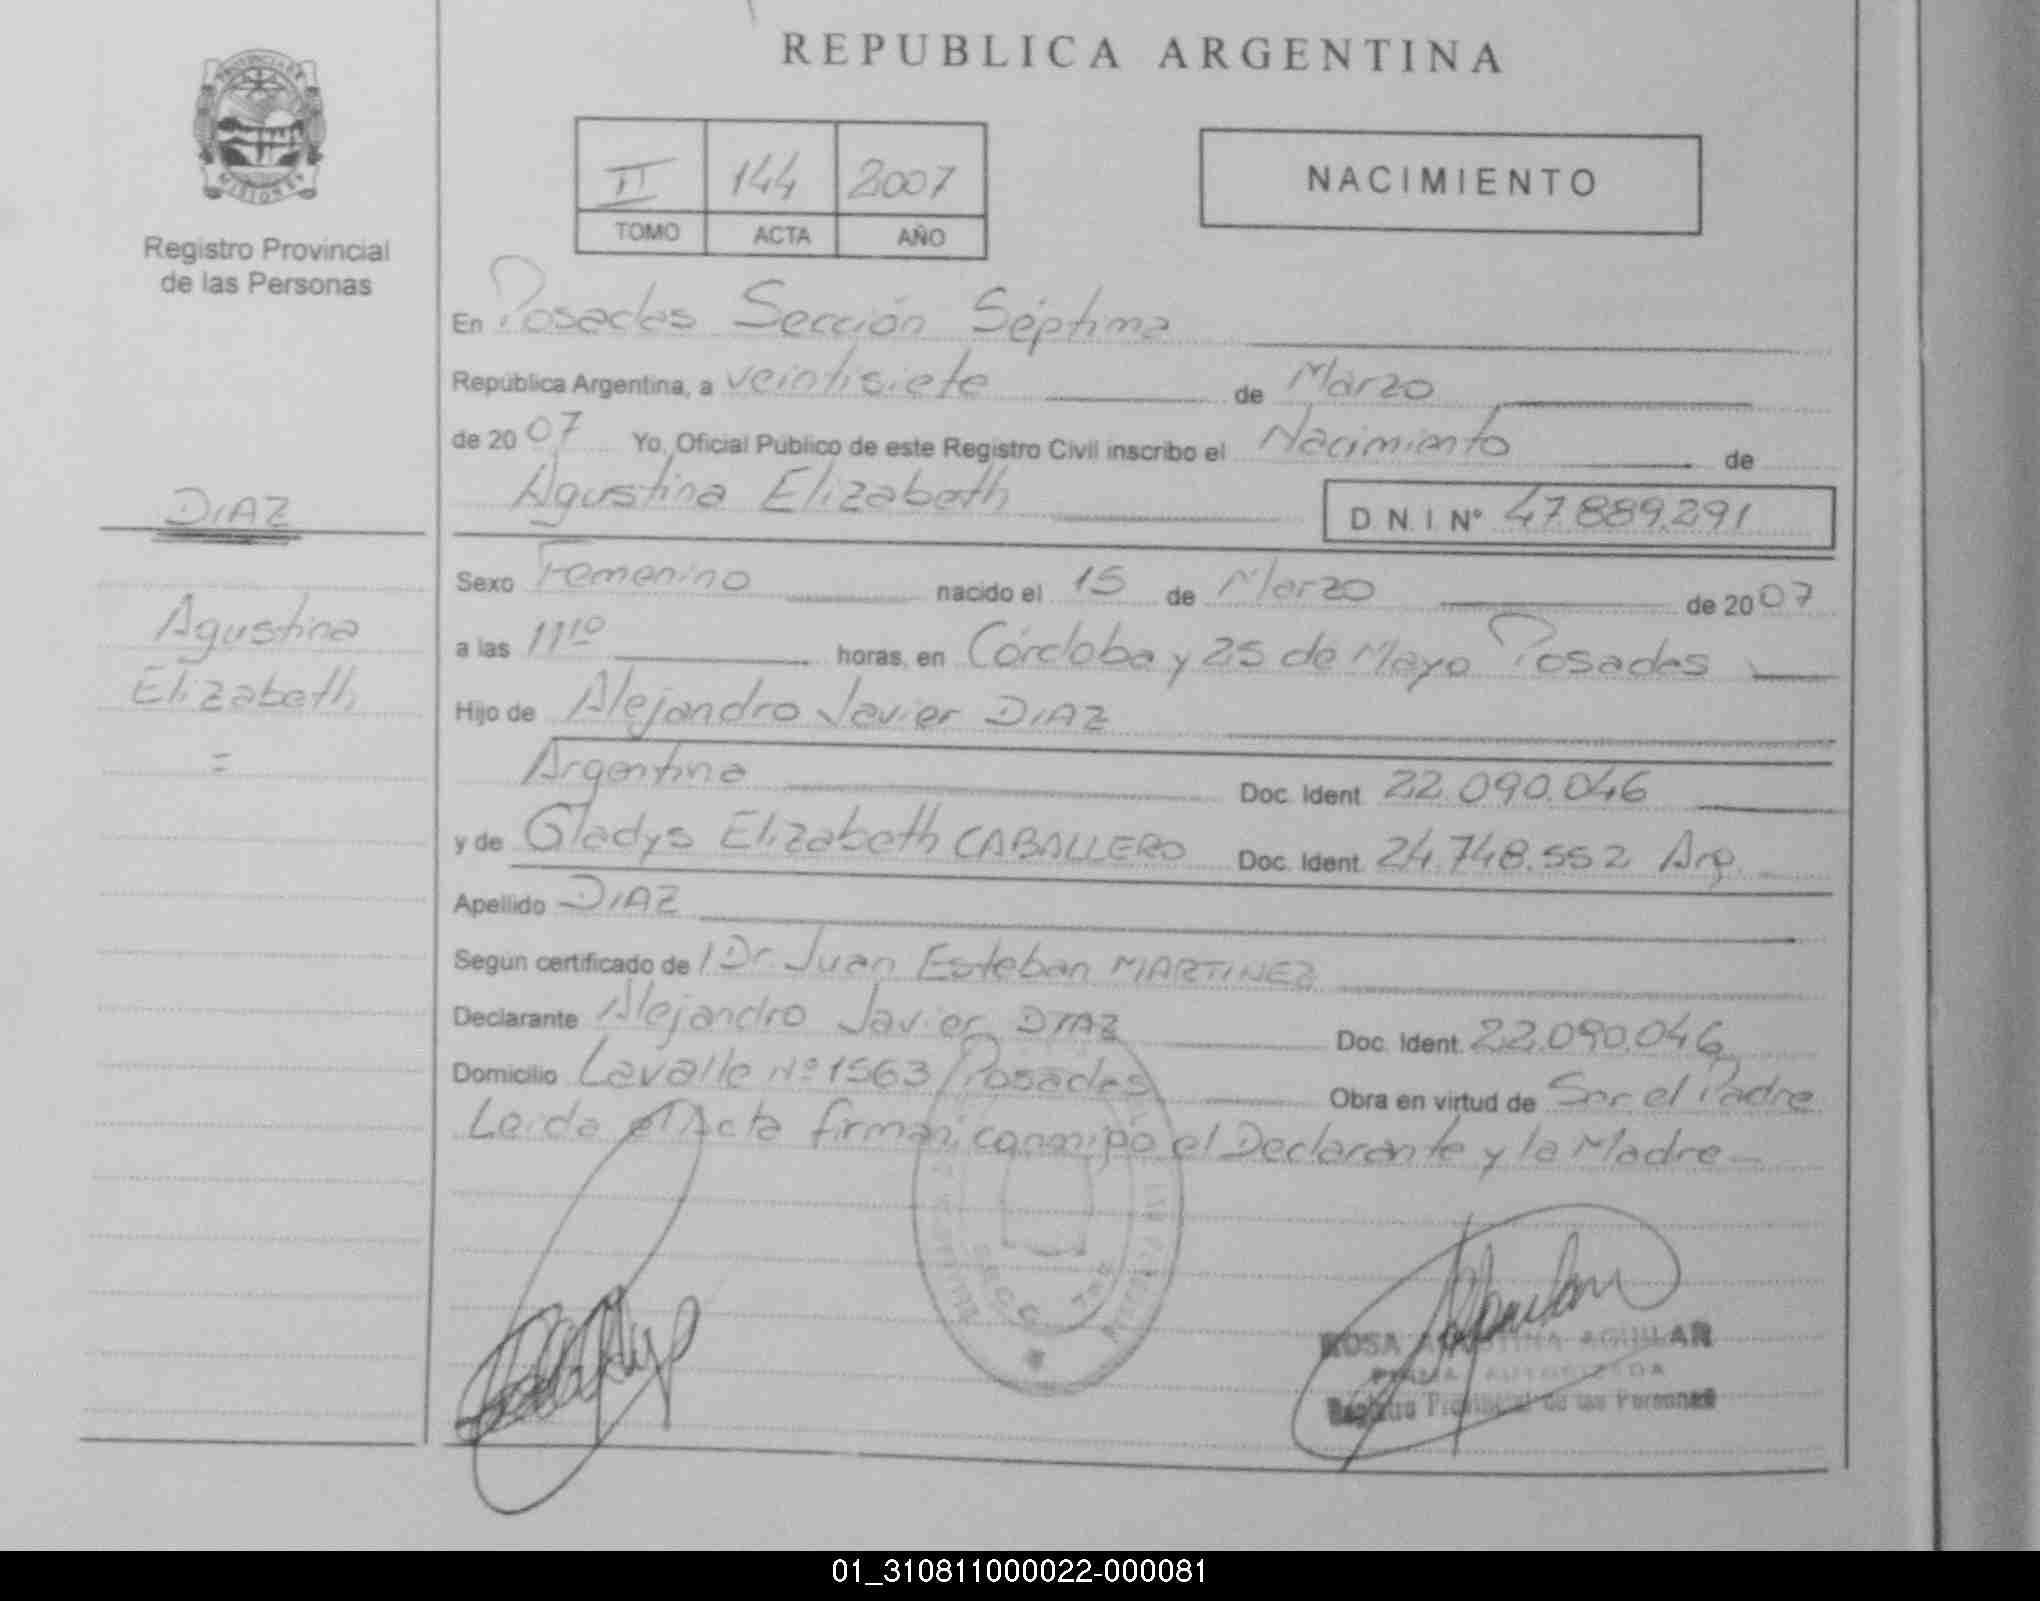 REPUBLICA ARGENTINA
PROVINCIA DE
MISIONES
Registro Provincial
de las Personas
II 144 2007
TOMO ACTA AÑO
NACIMIENTO
En Posadas Sección Séptima
República Argentina, a veintisiete de Marzo
de 2007 Yo, Oficial Público de este Registro Civil inscribo el Nacimiento de
Agustina Elizabeth D N I Nº 47.889.291
DIAZ
Agustina
Elizabeth
=
Sexo Femenino nacido el 15 de Marzo de 2007
a las 11 10 horas, en Córdoba y 25 de Mayo Posadas
Hijo de Alejandro Javier DIAZ
Argentina Doc. Ident. 22.090.046
y de Gladys Elizabeth CABALLERO Doc. Ident. 24.748.552 Arg.
Apellido DIAZ
Según certificado de / Dr. Juan Esteban MARTINEZ
Declarante Alejandro Javier DIAZ Doc. Ident. 22.090.046
Domicilio Lavalle Nº 1563 / Posadas Obra en virtud de Ser el Padre
Leida el Acta firman conmigo el Declarante y la Madre -
ROSA AGUSTINA AGUILAR
FIRMA AUTORIZADA
Registro Provincial de las Personas
01_310811000022-000081